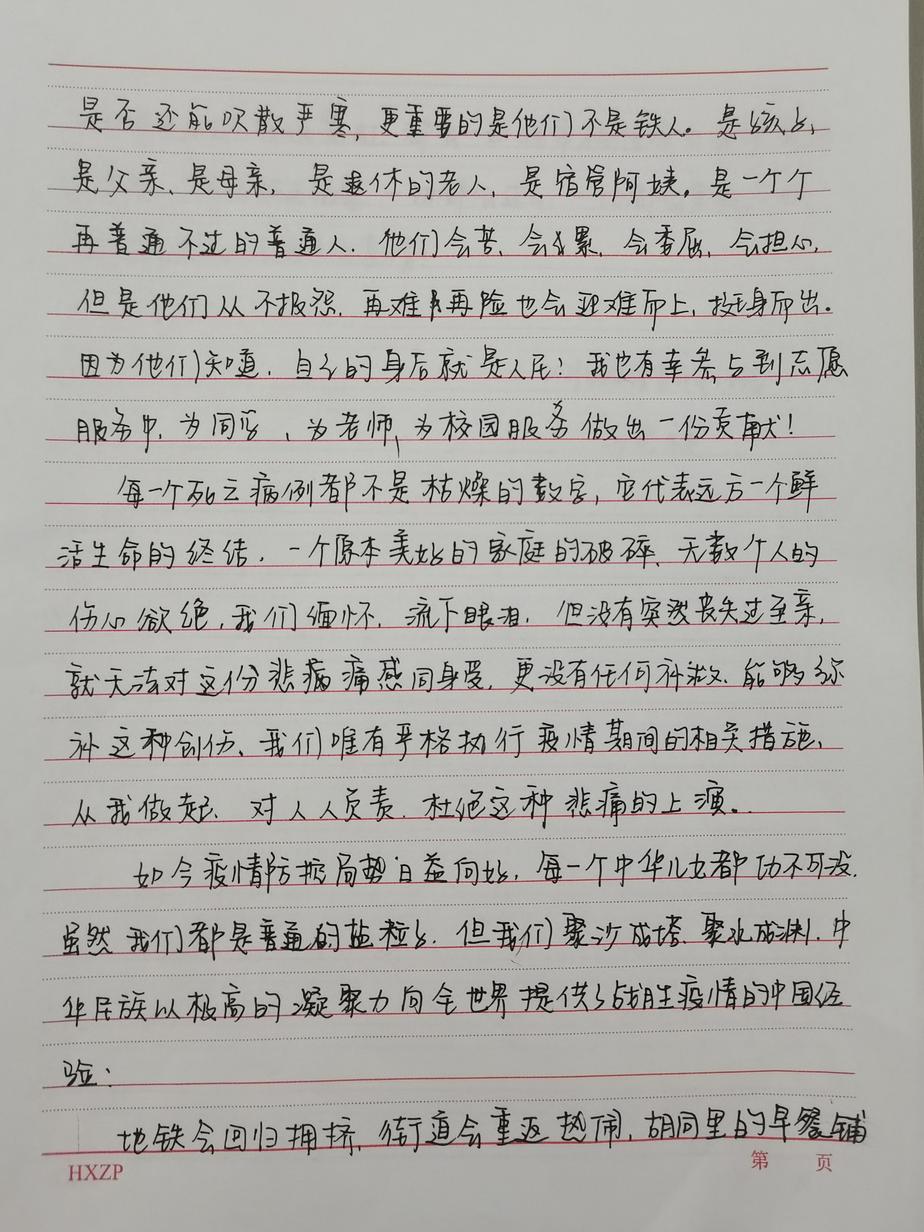 是否还能吹散严寒，更重要的是他们不是铁人。是孩子，
是父亲、是母亲，是退休的老人，是宿管阿姨。是一个个
再普通不过的普通人．他们会苦、会累，会委屈，会担心，
但是他们从不报怨．再难再险也会迎难而上，挺身而出。
因为他们知道，自己的身后就是人民！我也有幸参与到志愿
服务中，为同学、为老师、为校园服务做出一份贡献！
每一个死亡病例都不是枯燥的数字，它代表远方一个鲜
活生命的终结．一个原本美好的家庭的破碎、无数个人的
伤心欲绝，我们缅怀，流下眼泪．但没有突然丧失过至亲，
就无法对这份悲痛痛感同身受，更没有任何补救、能够弥
补这种创伤、我们唯有严格执行疫情期间的相关措施、
从我做起、对人人负责．杜绝这种悲痛的上演。
如今疫情防控局势日益向好，每一个中华儿女都功不可没．
虽然我们都是普通的盐粒子．但我们聚沙成塔、聚水成渊．中
华民族以极高的凝聚力向全世界提供了战胜疫情的中国经
验：
地铁会回归拥挤，街道会重返热闹，胡同里的早餐铺
HXZP 第 页